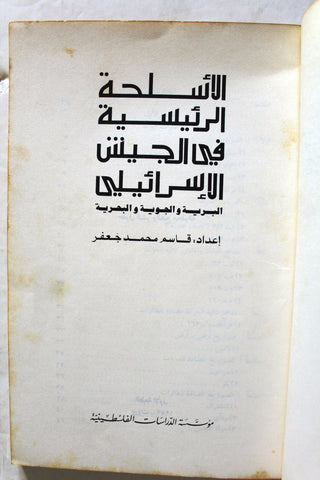 الأسلحة
الرئيسية
في الجيش
الإسرائيلي
البرية والجوية والبحرية
إعداد: قاسم محمد جعفر
مؤسسة الدراسات الفلسطينية